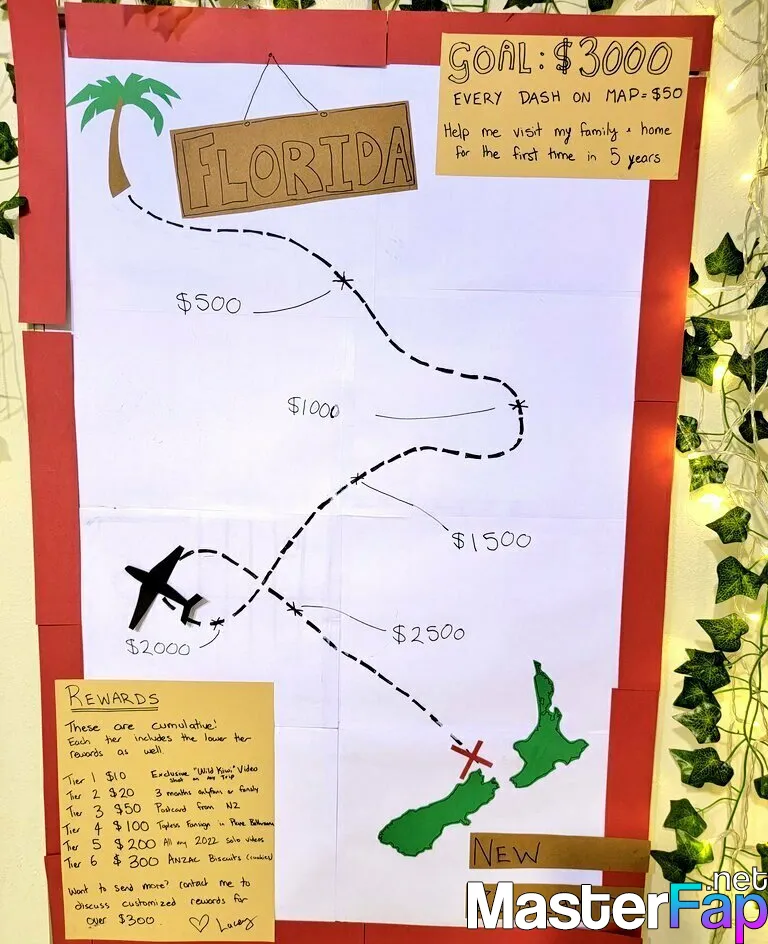 GOAL: $3000
EVERY DASH ON MAP = $50
Help me visit my family + home
for the first time in 5 years
FLORIDA
$500
$1000
$1500
$2000
$2500
NEW
REWARDS
These are cumulative!
Each tier includes the lower tier
rewards as well.
Tier 1 $10 Exclusive "Wild Kiwi" Video
shot on my trip
Tier 2 $20 3 months onlyfans or fansly
Tier 3 $50 Postcard from NZ
Tier 4 $100 Topless Fansign in Plane Bathroom
Tier 5 $200 All my 2022 solo videos
Tier 6 $300 ANZAC Biscuits (cookies)
Want to send more? contact me to
discuss customized rewards for
over $300. ♡ Lucey
MasterFap.net